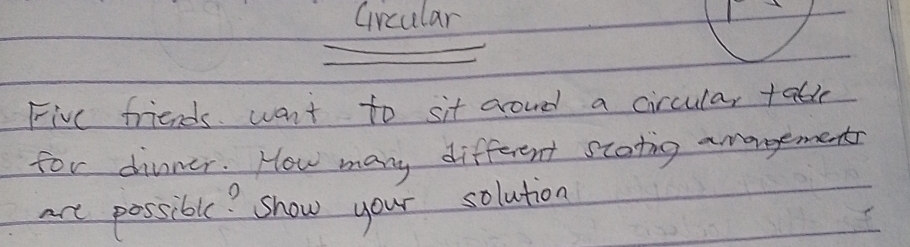 Circular
Five friends want to sit around a circular table
for dinner. How many different seating arrangements
are possible? Show your solution